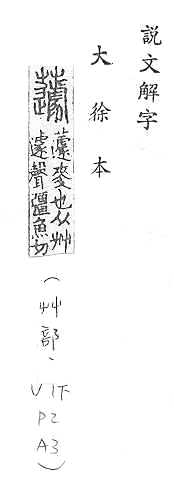 說文解字
大徐本
蘧 蘧麥也从艸
遽聲彊魚切
（艸部、
V 1下
P2
A3）